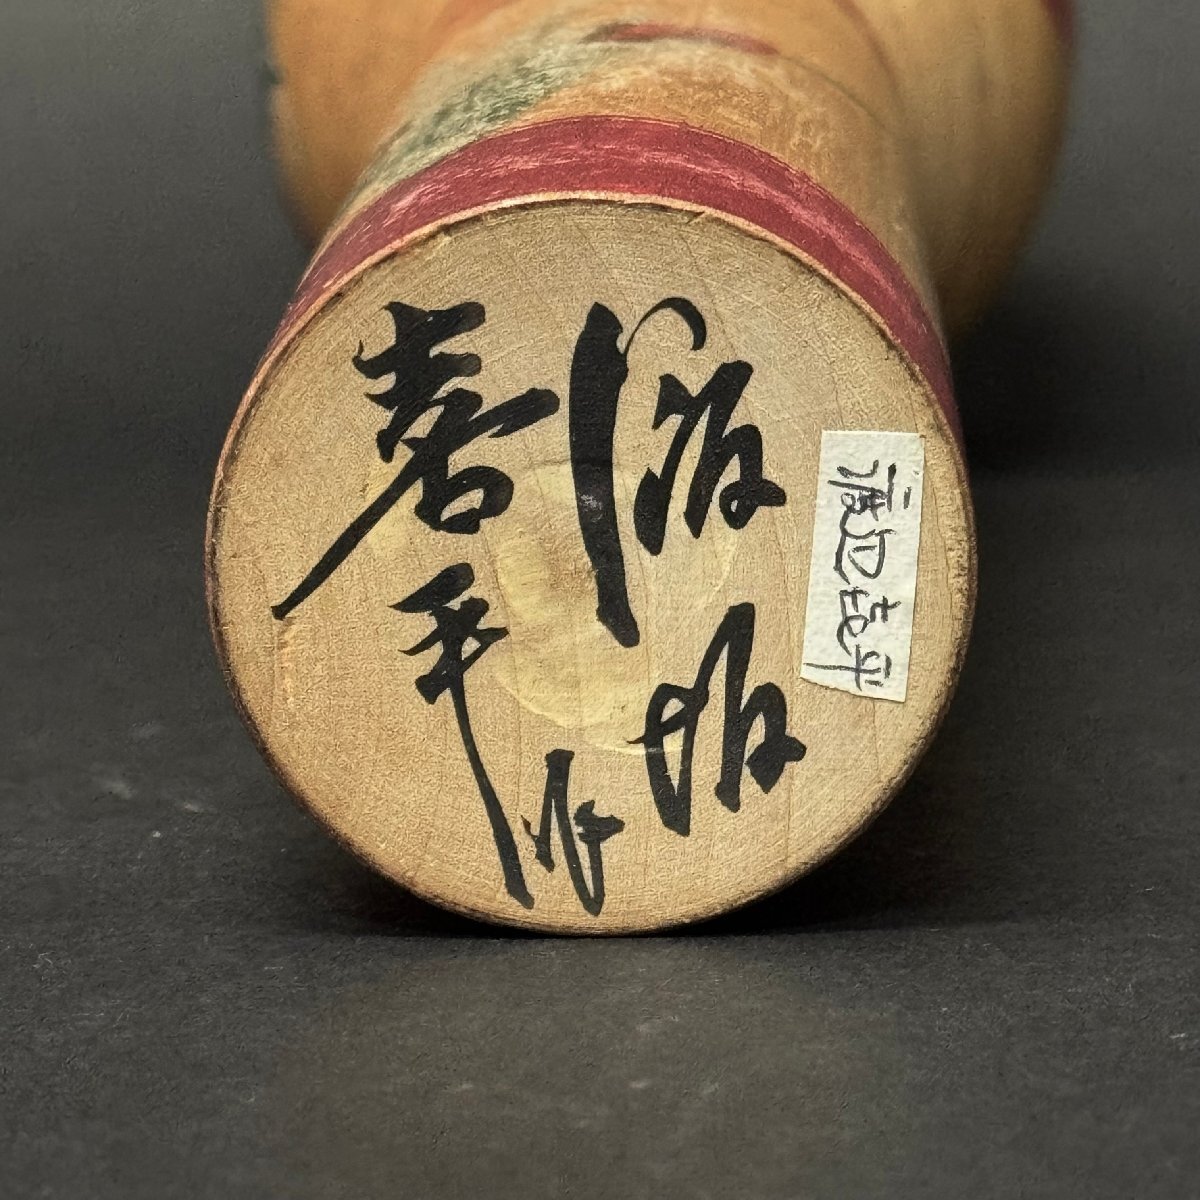 渡辺
喜平作
渡辺喜平